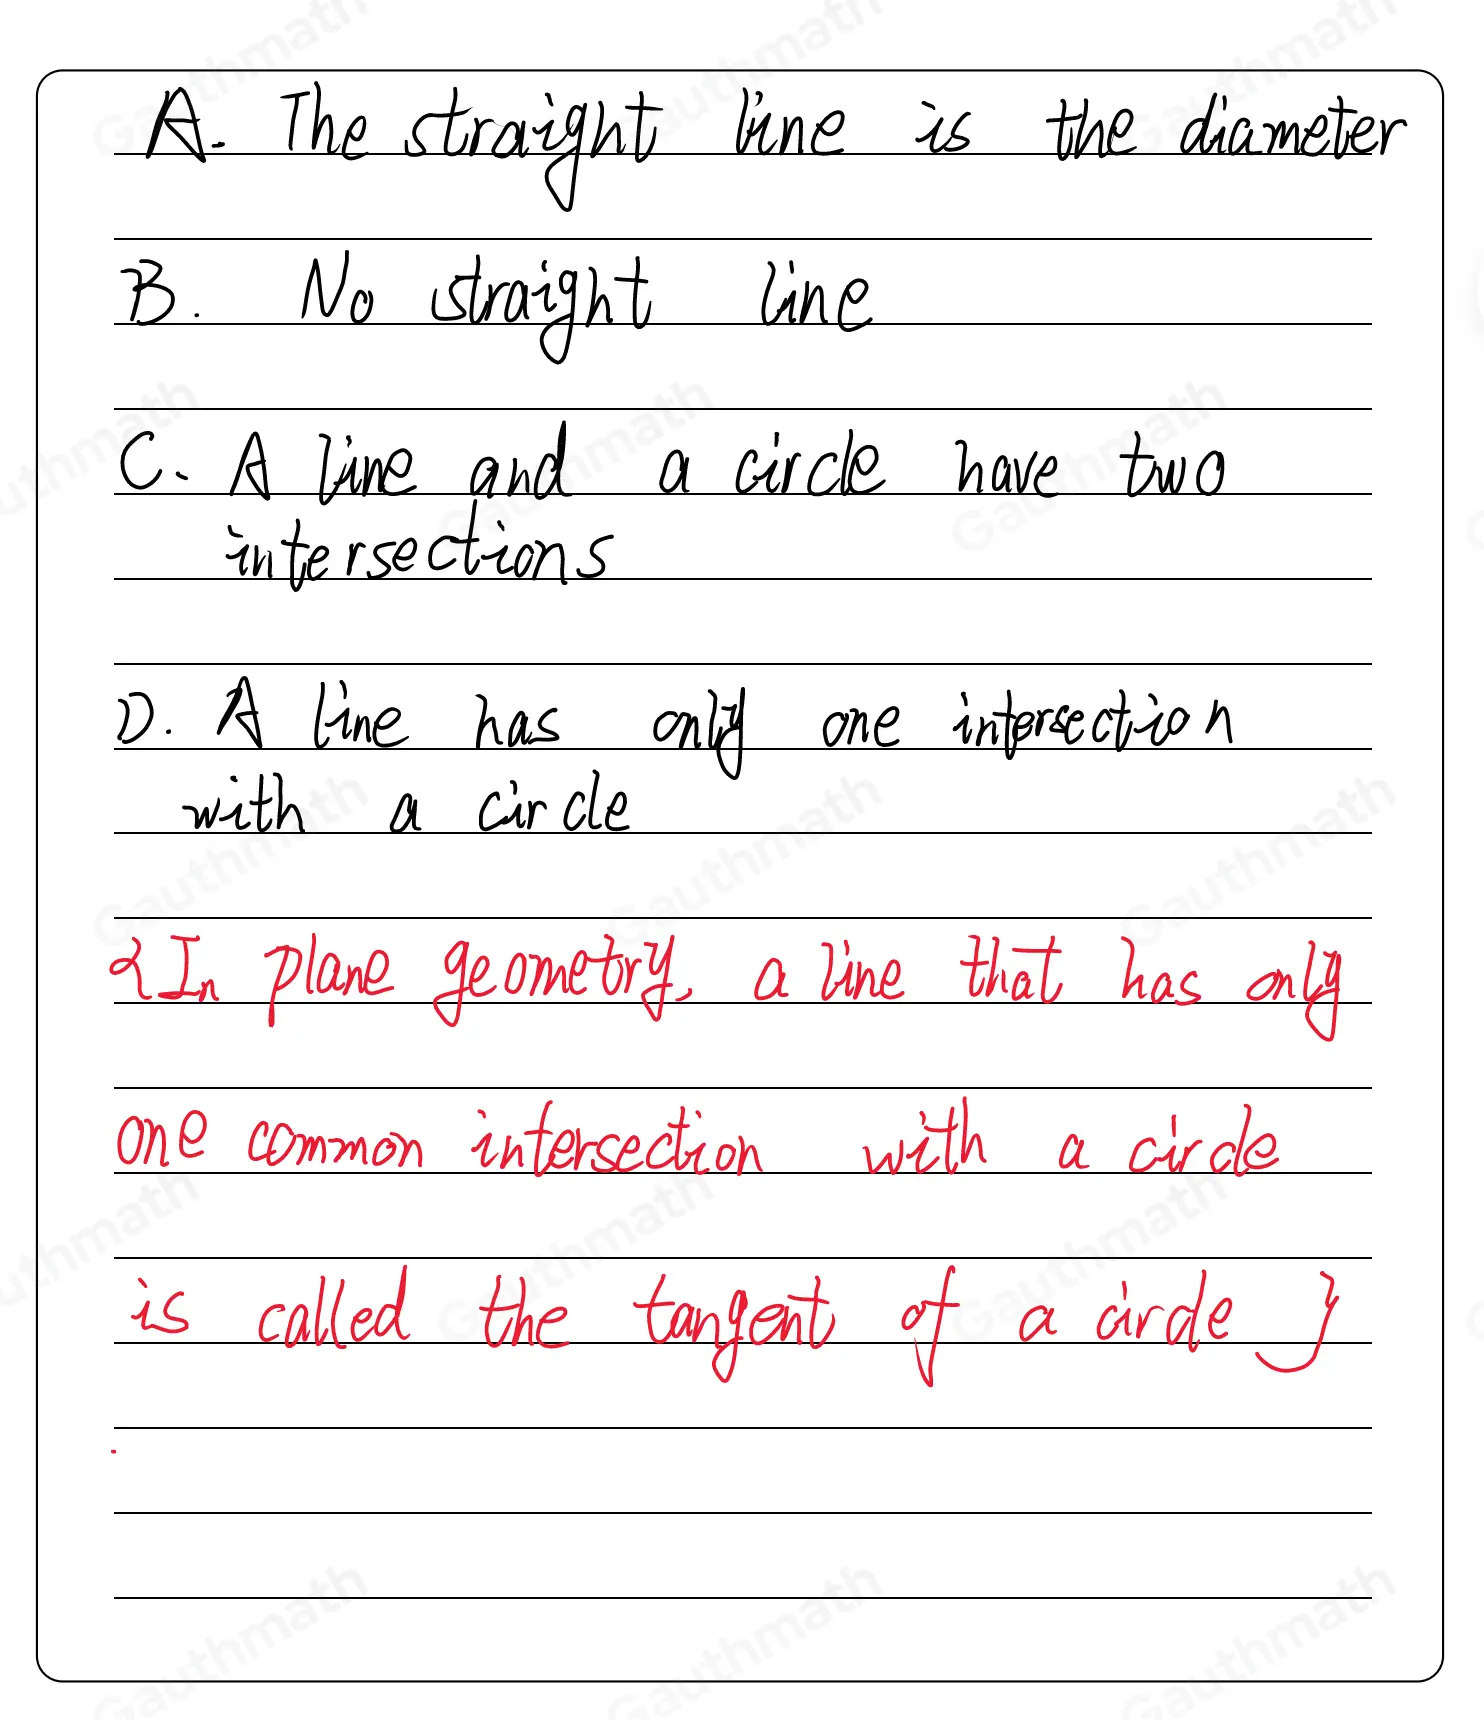 A. The straight line is the diameter
B. No straight line
C. A line and a circle have two
intersections
D. A line has only one intersection
with a circle
{In plane geometry, a line that has only
one common intersection with a circle
is called the tangent of a circle }
Gauthmath